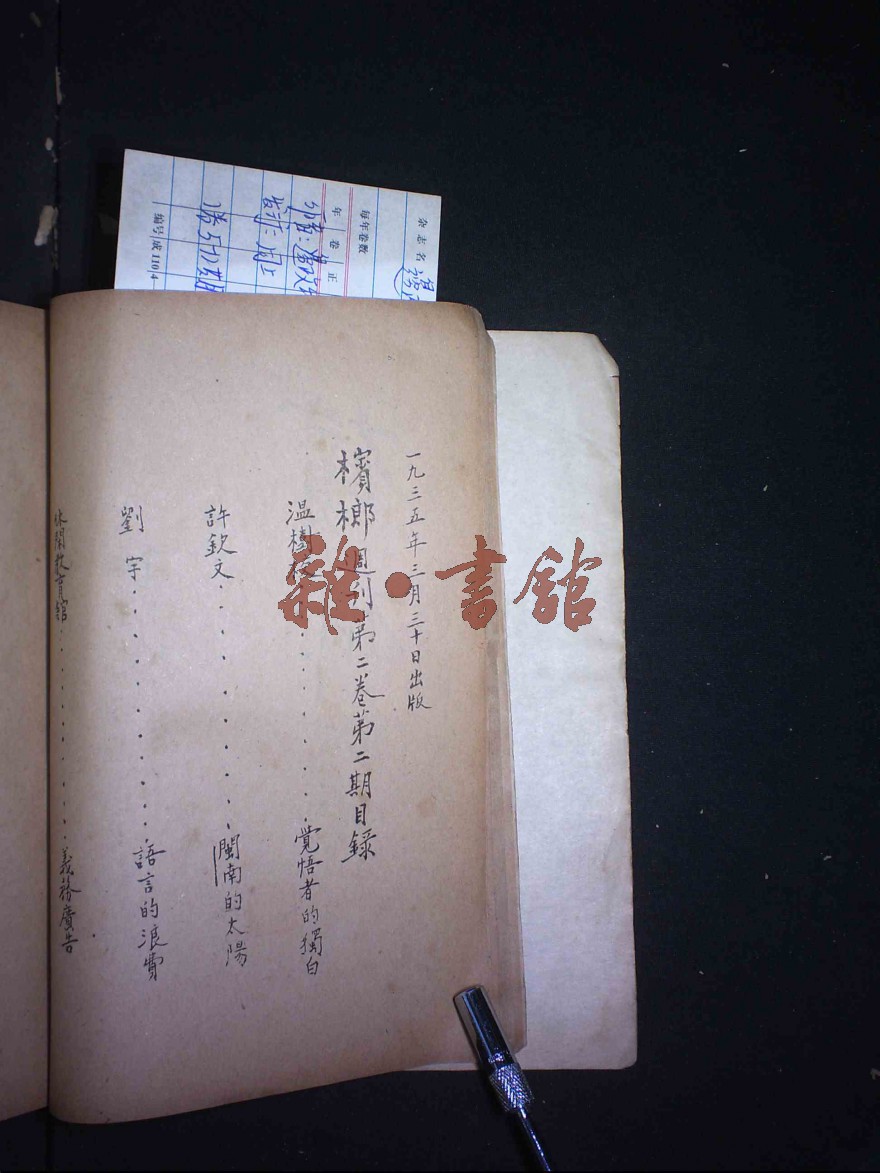 一九三五年三月三十日出版
檳榔週刊第二卷第二期目錄
温樹校・・・・・・・・覺悟者的獨白
許欽文・・・・・・・・閩南的太陽
劉宇・・・・・・・・・・・語言的浪費
休閒教育館・・・・・・・・・・義務廣告
杂志名
每年卷数
年 卷 正
编号成110|4
雜・書館